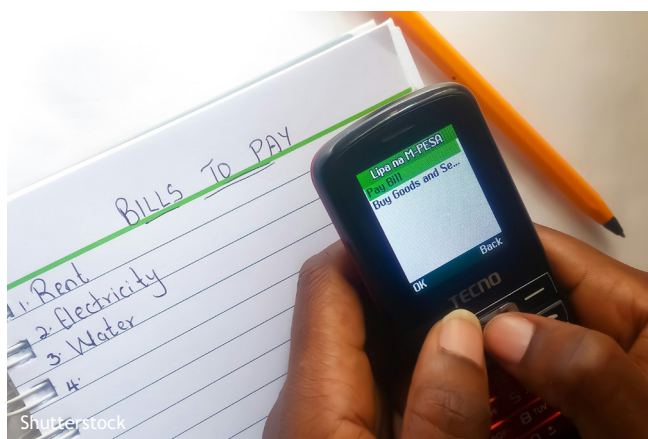 BILLS TO PAY
1. Rent
2. Electricity
3. Water
4.
Lipa na M-PESA
Pay Bill
Buy Goods and Se...
OK
Back
TECNO
Shutterstock